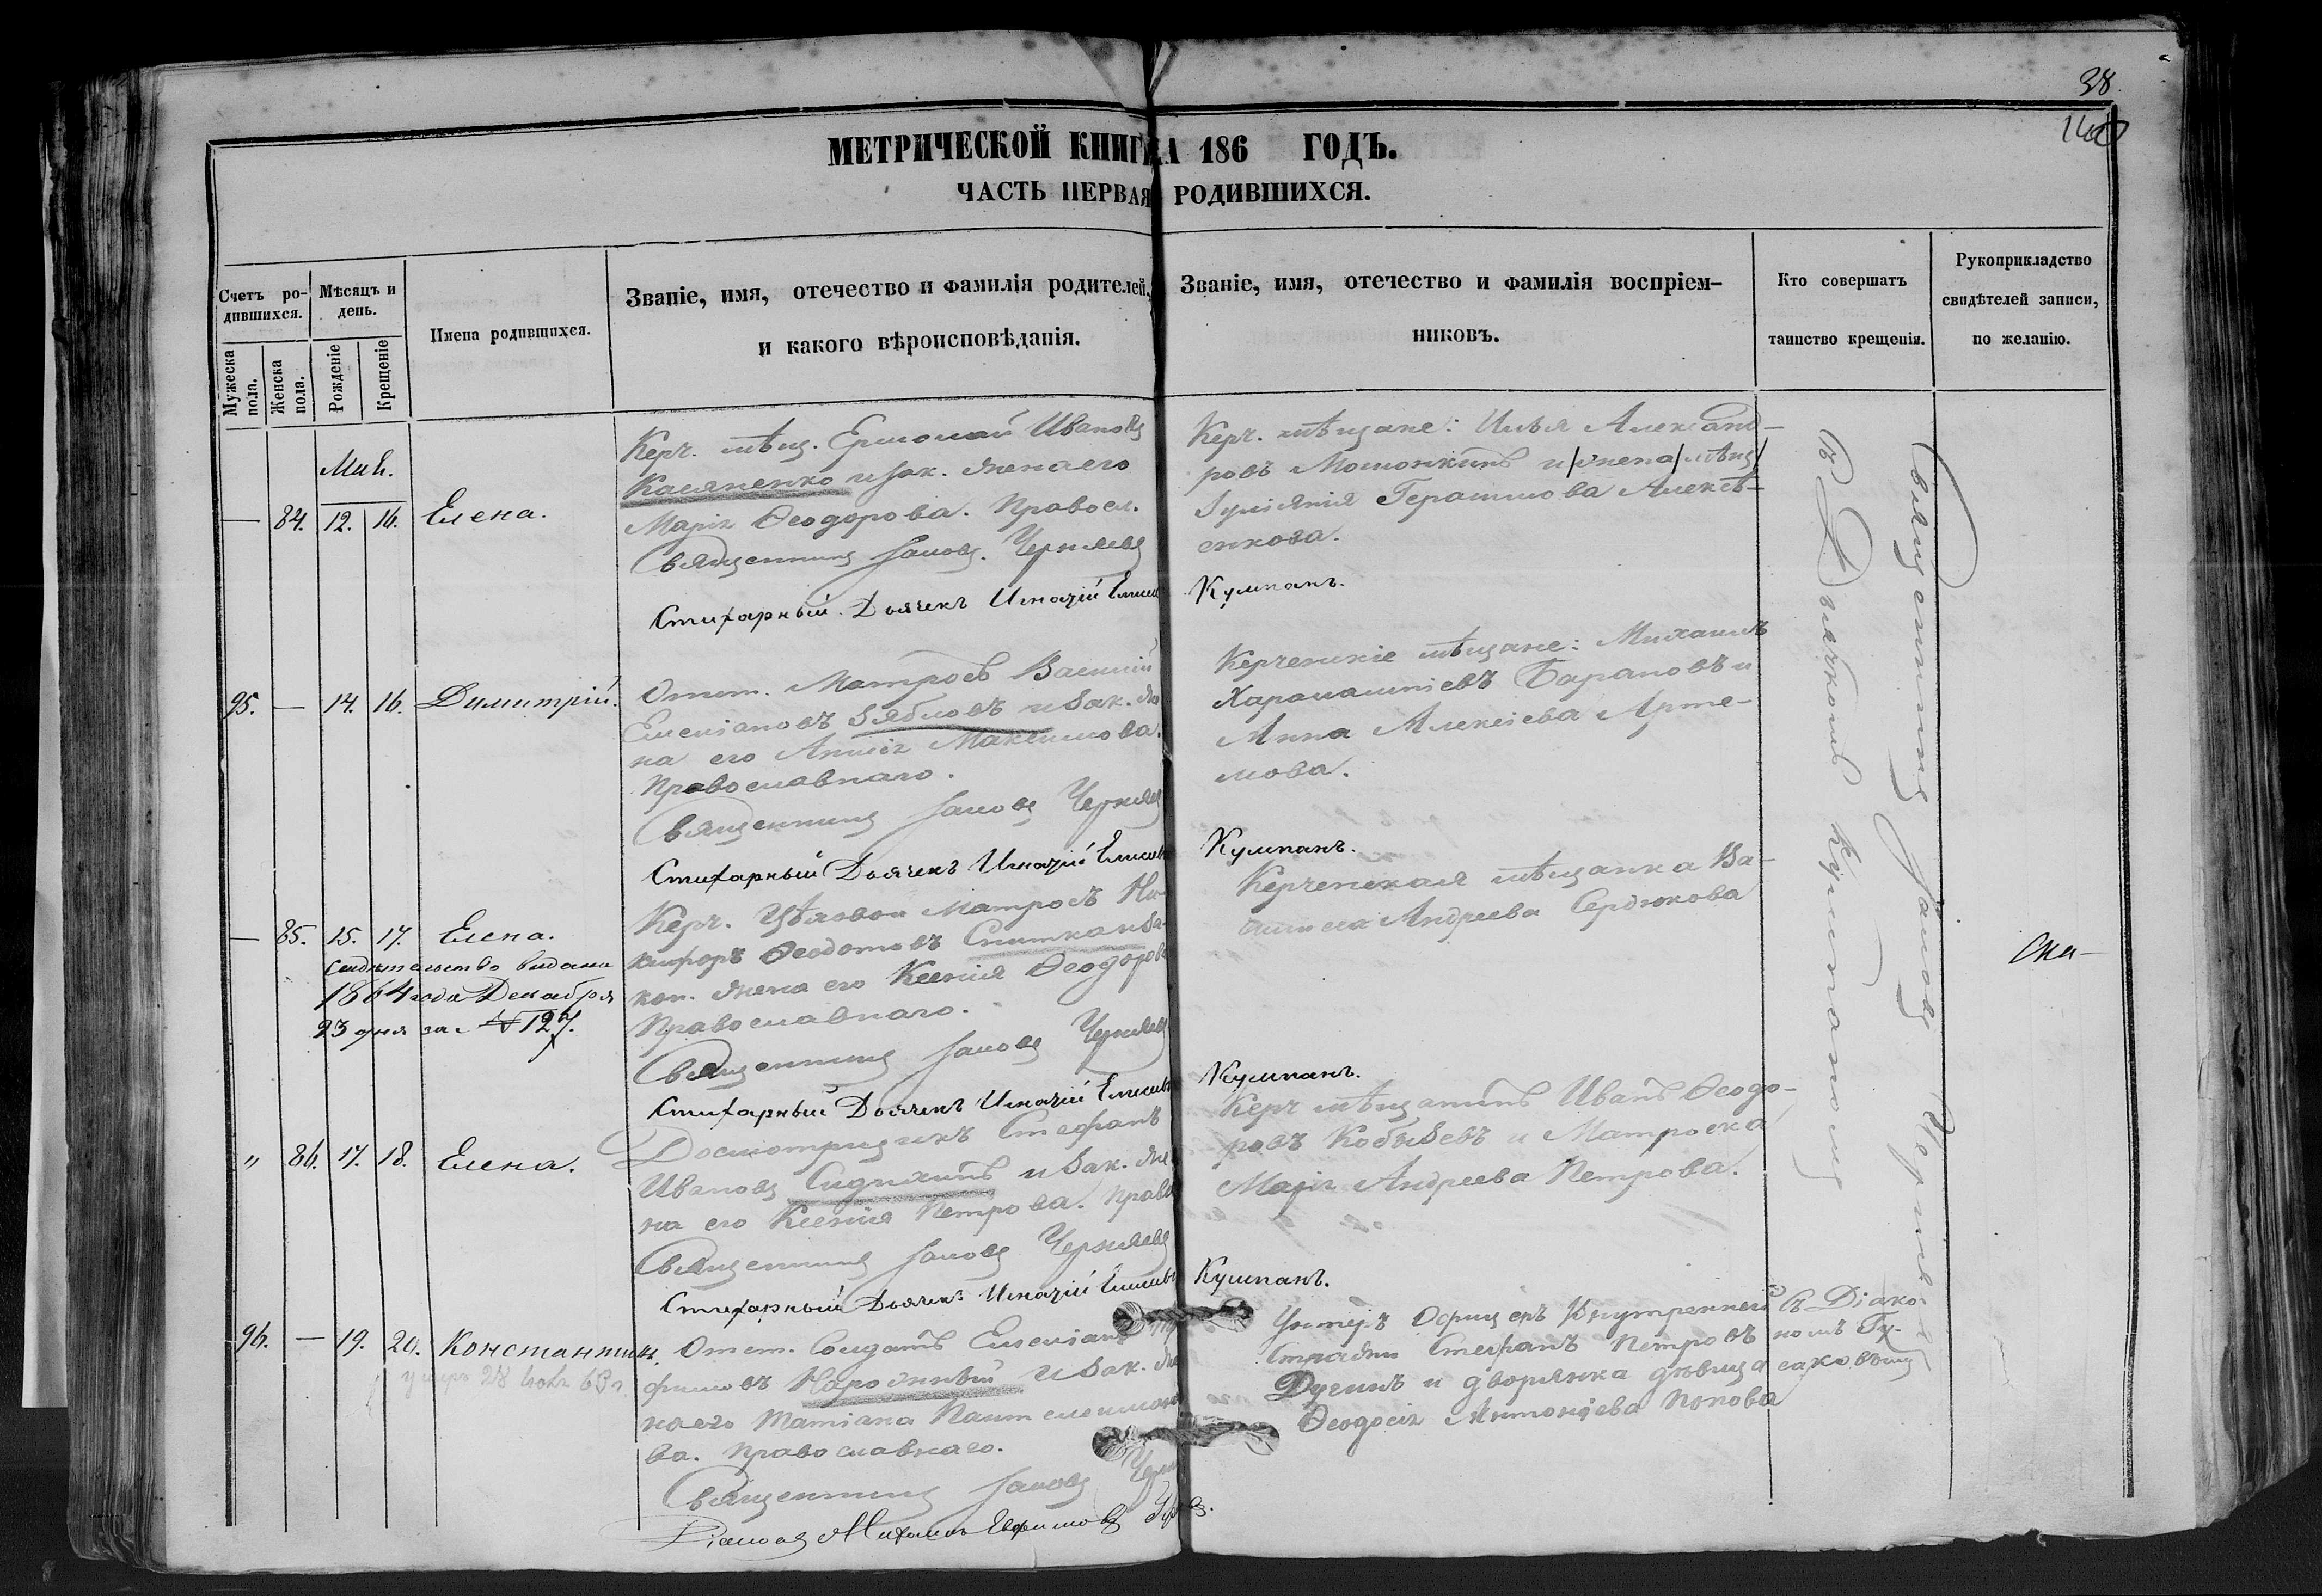 38.
140
МЕТРИЧЕСКОЙ КНИГИ НА 186 ГОДЪ.
ЧАСТЬ ПЕРВАЯ РОДИВШИХСЯ.
Счетъ ро-
дившихся.
Мужеска пола.
Женска пола.
Мѣсяцъ и
день.
Рожденіе
Крещеніе
Имена родившихся.
Званіе, имя, отечество и фамилія родителей,
и какого вѣроисповѣданія.
Званіе, имя, отечество и фамилія воспріем-
никовъ.
Кто совершатъ
таинство крещенія.
Рукоприкладство
свидѣтелей записи,
по желанію.
— 84. 12. 16. Елена.
Керч. мѣщ. Ермолай Ивановъ
Касяненко и зак. жена его
Марія Ѳеодорова. Правосл.
Священникъ Іаковъ Черняевъ
Стихарный Дьячекъ Игнатій
Кумпанъ.
Керч. мѣщане: Илья Александ-
ровъ Мошонкинъ и жена мѣщ
Іуліянія Герасимова Алексѣ-
енкова.
95. — 14. 16. Димитрій.
Отст. Матросъ Василій
Емеліановъ Зябловъ и зак. же
на его Анна Максимова.
Православнаго.
Священникъ Іаковъ Черняевъ
Стихарный Дьячекъ Игнатій
Кумпанъ.
Керченскіе мѣщане: Михаилъ
Харалампіевъ Барановъ и
Анна Алексіева Арте-
мова.
— 85. 15. 17. Елена.
свидѣтельство видано
1864 года Декабря
23 дня за № 127.
Керч. Матросъ Ни-
кифоръ Ѳеодотовъ и за-
кон. жена его Ксенія Ѳеодорова
Православнаго.
Священникъ Іаковъ Черняевъ
Стихарный Дьячекъ Игнатій
Кумпанъ.
Керченская мѣщанка Ва-
силиса Андреева Сердюкова
„ 86. 17. 18. Елена.
Досмотрщикъ Стефанъ
Ивановъ и зак. же
на его Ксенія Петрова. Прав
Священникъ Іаковъ Черняевъ
Стихарный Дьячекъ Игнатій
Кумпанъ.
Керч мѣщанинъ Иванъ Ѳеодо-
ровъ Кобызевъ и Матроска
Марія Андреева Петрова.
96. — 19. 20. Константинъ.
умеръ 28 63 г.
Отст. Солдатъ Емеліанъ
фимовъ Народный и зак. же
на его Татіана Пантелеимоно
ва. Православнаго.
Священникъ Іаковъ Черн
Діаконъ Михаилъ Евфимовъ
Унтеръ Офицеръ Внутренней
Стражи Стефанъ Петровъ
Дугинъ и дворянка дѣвица
Ѳеодосія Антоніева Попова
Священникъ Іаковъ Черняевъ
съ Дьячкомъ Кумпаномъ
съ Діако-
номъ Гу-
саковымъ